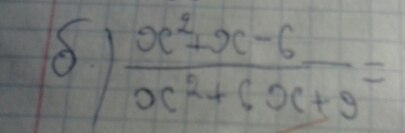 б.) x²+x-6
x²+6x+9 =